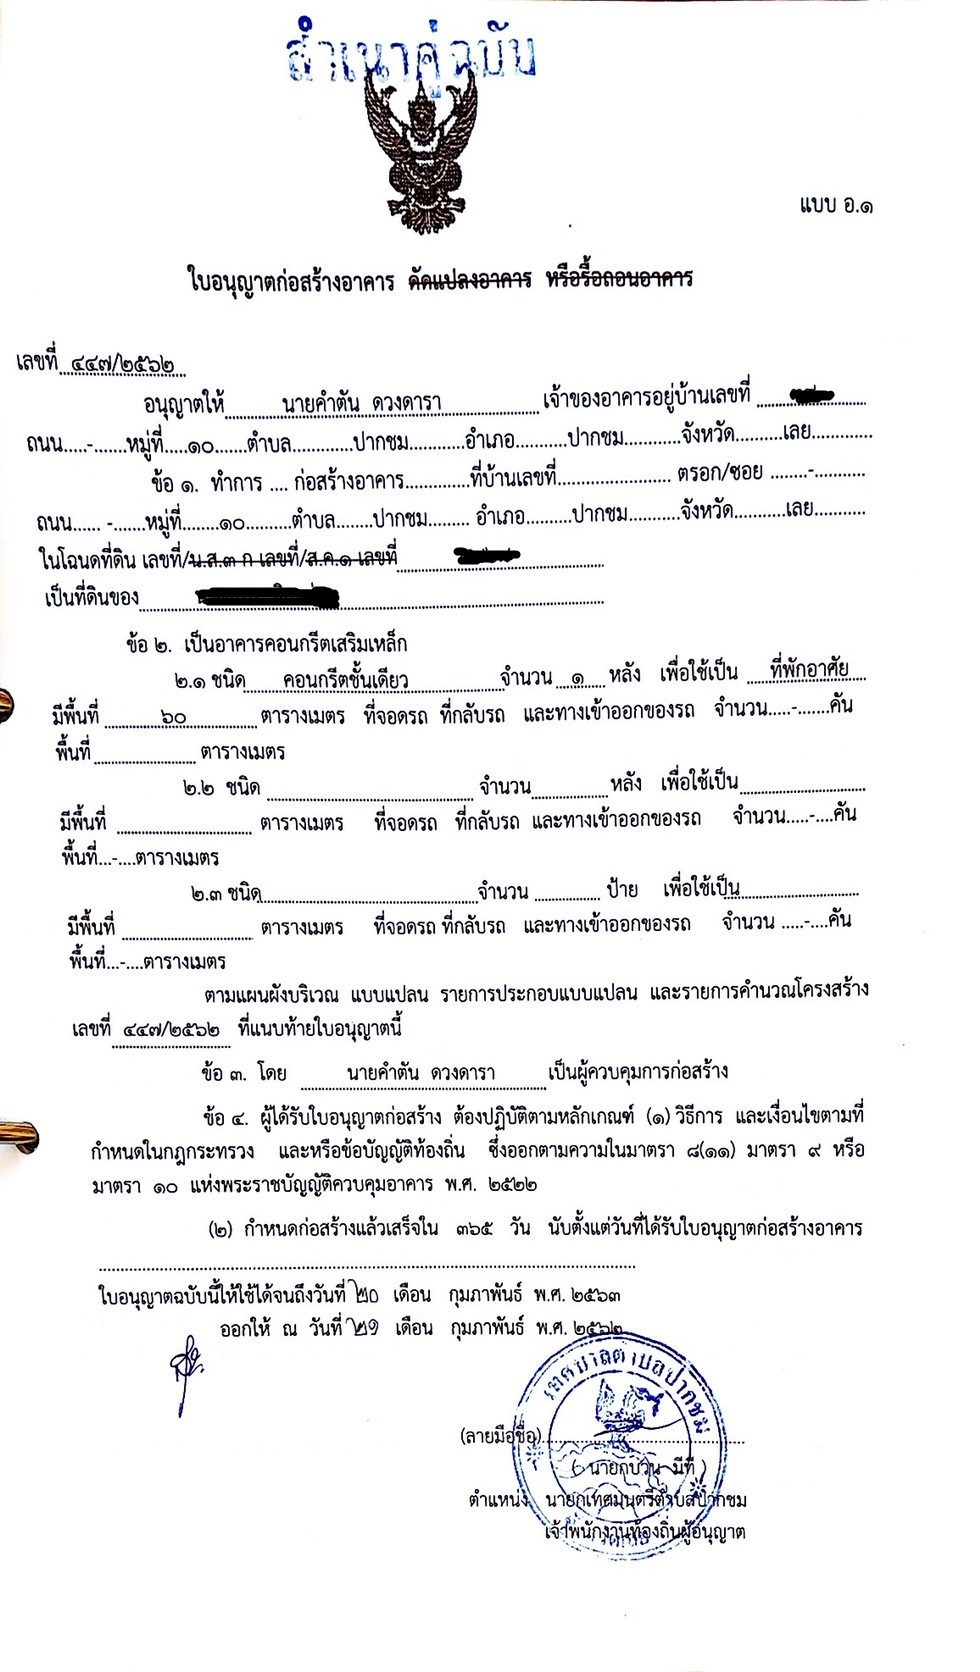 สำเนาคู่ฉบับ
แบบ อ.๑
ใบอนุญาตก่อสร้างอาคาร ดัดแปลงอาคาร หรือรื้อถอนอาคาร
เลขที่ ๔๔๗/๒๕๖๒
อนุญาตให้ นายคำตัน ดวงดารา เจ้าของอาคารอยู่บ้านเลขที่
ถนน.....-.......หมู่ที่.....๑๐......ตำบล.............ปากชม...........อำเภอ...........ปากชม............จังหวัด..........เลย.............
ข้อ ๑. ทำการ .... ก่อสร้างอาคาร.............ที่บ้านเลขที่........................ ตรอก/ซอย ........-...........
ถนน...... -.......หมู่ที่........๑๐..........ตำบล........ปากชม......... อำเภอ..........ปากชม...........จังหวัด...........เลย...........
ในโฉนดที่ดิน เลขที่/น.ส.๓ ก เลขที่/ส.ค.๑ เลขที่
เป็นที่ดินของ
ข้อ ๒. เป็นอาคารคอนกรีตเสริมเหล็ก
๒.๑ ชนิด คอนกรีตชั้นเดียว จำนวน ๑ หลัง เพื่อใช้เป็น ที่พักอาศัย
มีพื้นที่ ๖๐ ตารางเมตร ที่จอดรถ ที่กลับรถ และทางเข้าออกของรถ จำนวน.....-.......คัน
พื้นที่ ตารางเมตร
๒.๒ ชนิด จำนวน หลัง เพื่อใช้เป็น
มีพื้นที่ ตารางเมตร ที่จอดรถ ที่กลับรถ และทางเข้าออกของรถ จำนวน.....-....คัน
พื้นที่...-....ตารางเมตร
๒.๓ ชนิด จำนวน ป้าย เพื่อใช้เป็น
มีพื้นที่ ตารางเมตร ที่จอดรถ ที่กลับรถ และทางเข้าออกของรถ จำนวน .....-....คัน
พื้นที่...-....ตารางเมตร
ตามแผนผังบริเวณ แบบแปลน รายการประกอบแบบแปลน และรายการคำนวณโครงสร้าง
เลขที่ ๔๔๗/๒๕๖๒ ที่แนบท้ายใบอนุญาตนี้
ข้อ ๓. โดย นายคำตัน ดวงดารา เป็นผู้ควบคุมการก่อสร้าง
ข้อ ๔. ผู้ได้รับใบอนุญาตก่อสร้าง ต้องปฏิบัติตามหลักเกณฑ์ (๑) วิธีการ และเงื่อนไขตามที่
กำหนดในกฎกระทรวง และหรือข้อบัญญัติท้องถิ่น ซึ่งออกตามความในมาตรา ๘(๑๑) มาตรา ๙ หรือ
มาตรา ๑๐ แห่งพระราชบัญญัติควบคุมอาคาร พ.ศ. ๒๕๒๒
(๒) กำหนดก่อสร้างแล้วเสร็จใน ๓๖๕ วัน นับตั้งแต่วันที่ได้รับใบอนุญาตก่อสร้างอาคาร
ใบอนุญาตฉบับนี้ให้ใช้ได้จนถึงวันที่ ๒๐ เดือน กุมภาพันธ์ พ.ศ. ๒๕๖๓
ออกให้ ณ วันที่ ๒๑ เดือน กุมภาพันธ์ พ.ศ. ๒๕๖๒
เทศบาลตำบลปากชม
(ลายมือชื่อ)
ตำแหน่ง นายกเทศมนตรีตำบลปากชม
เจ้าพนักงานท้องถิ่นผู้อนุญาต